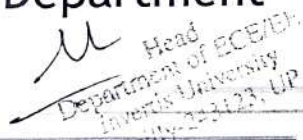 Department
Head
Department of ECE/EI
Invertis University
243123, UP